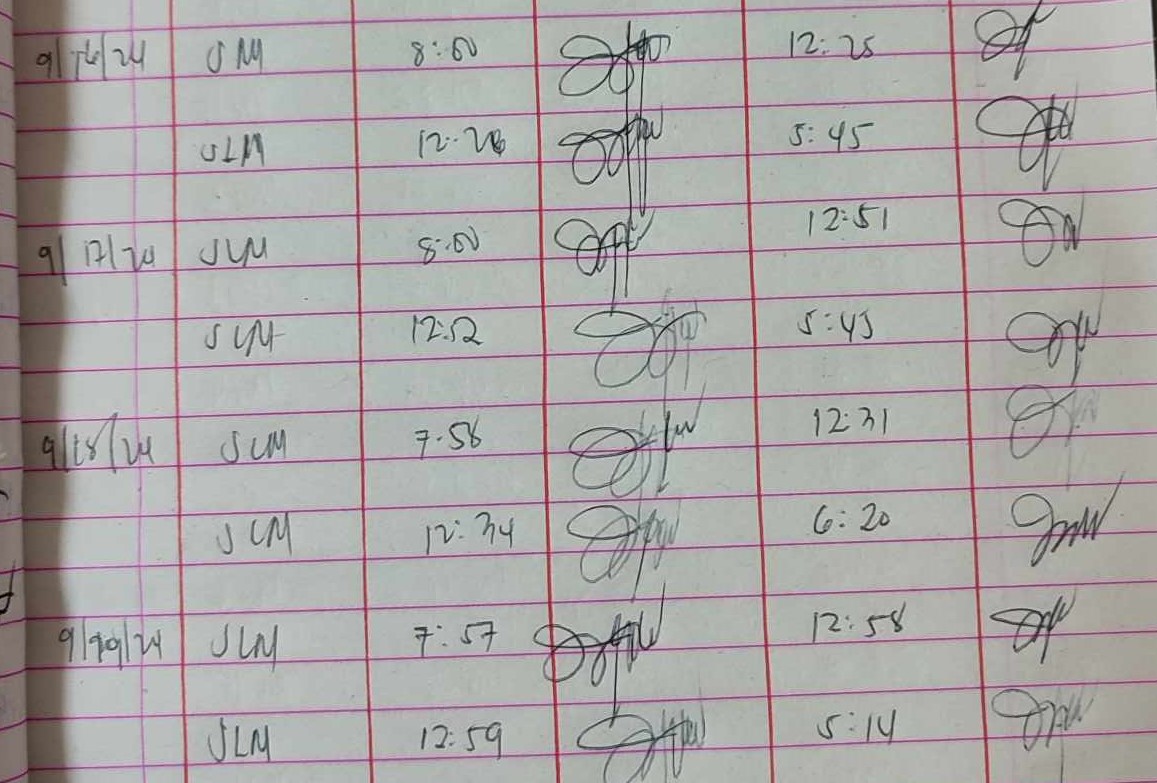 9/16/24 JLM 8:00 12:25
JLM 12:26 5:45
9/17/24 JLM 8:00 12:51
JLM 12:52 5:45
9/18/24 JLM 7:58 12:31
JLM 12:34 6:20
JLM 7:57 12:58
JLM 12:59 5:14